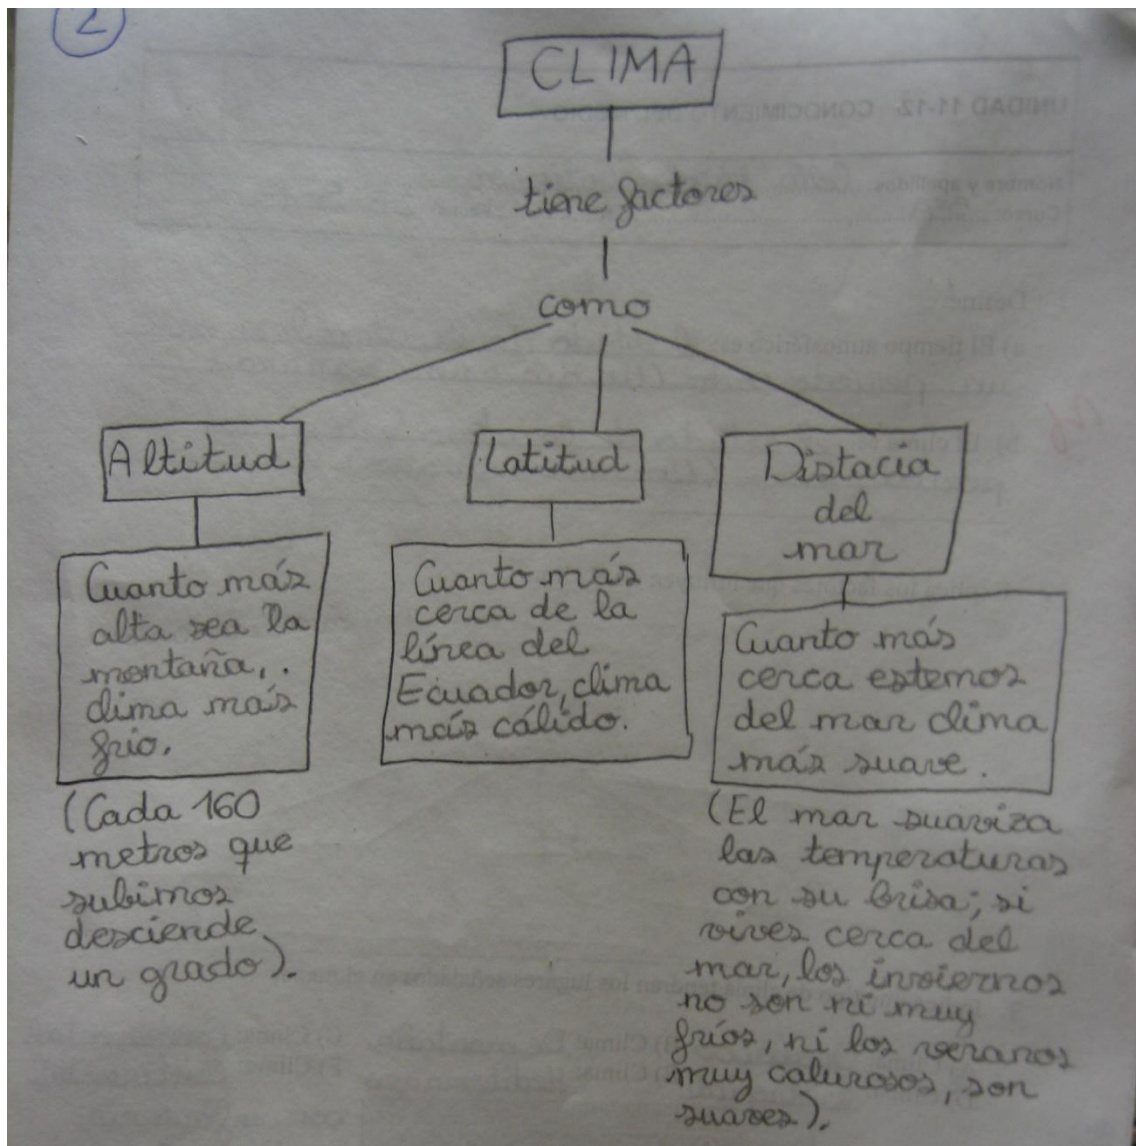 2
CLIMA
tiene factores
como
Altitud
Cuanto más
alta sea la
montaña,.
clima más
frio.
(Cada 160
metros que
subimos
desciende
un grado).
Latitud
Cuanto más
cerca de la
línea del
Ecuador, clima
más cálido.
Distacia
del
mar
Cuanto más
cerca estemos
del mar clima
más suave.
(El mar suaviza
las temperaturas
con su brisa; si
vives cerca del
mar, los inviernos
no son ni muy
fríos, ni los veranos
muy calurosos, son
suaves).
UNIDAD 11-12 CONOCIMIENTO DEL
Nombre y apellidos
a) El tiempo atmosférico e